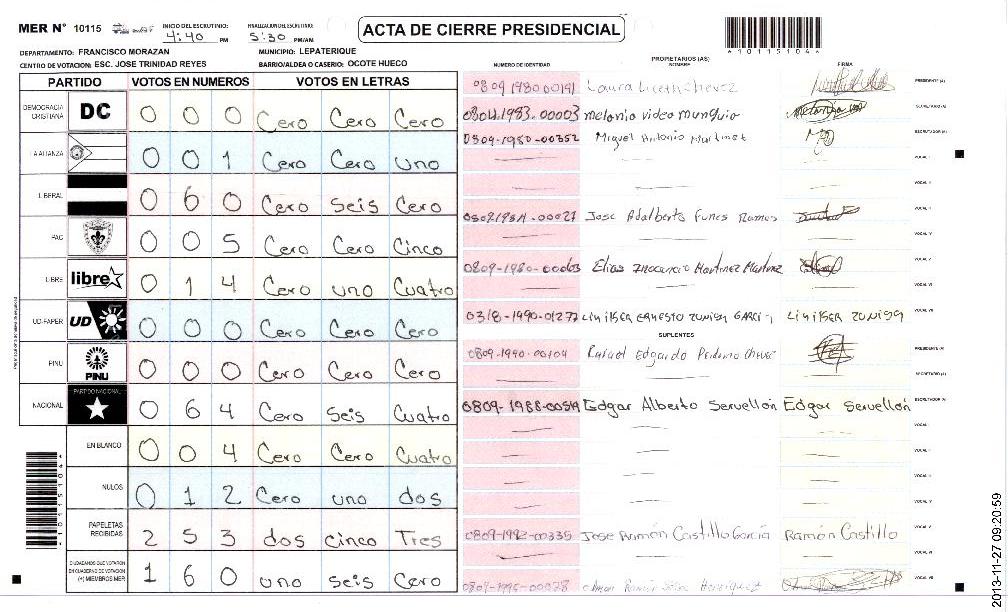 MER N° 10115
INICIO DEL ESCRUTINIO:
4:40 PM
FINALIZACION DEL ESCRUTINIO:
5:30 PM/AM
ACTA DE CIERRE PRESIDENCIAL
*10115104*
DEPARTAMENTO: FRANCISCO MORAZAN
MUNICIPIO: LEPATERIQUE
CENTRO DE VOTACION: ESC. JOSE TRINIDAD REYES
BARRIO/ALDEA O CASERIO: OCOTE HUECO
PARTIDO VOTOS EN NUMEROS VOTOS EN LETRAS
DEMOCRACIA CRISTIANA DC 0 0 0 Cero Cero Cero
LA ALIANZA 0 0 1 Cero Cero uno
LIBERAL 0 6 0 Cero seis Cero
PAC 0 0 5 Cero Cero Cinco
LIBRE libre 0 1 4 Cero uno Cuatro
UD-FAPER UD 0 0 0 Cero Cero Cero
PINU PINU 0 0 0 Cero Cero Cero
NACIONAL PARTIDO NACIONAL 0 6 4 Cero seis Cuatro
EN BLANCO 0 0 4 Cero Cero Cuatro
NULOS 0 1 2 Cero uno dos
PAPELETAS RECIBIDAS 2 5 3 dos cinco Tres
CIUDADANOS QUE VOTARON EN CUADERNO DE VOTACION (+) MIEMBROS MER 1 6 0 uno seis Cero
*10115104*
NUMERO DE IDENTIDAD
PROPIETARIOS (AS)
NOMBRE
FIRMA
0809 1980 00191 Laura PRESIDENTE (A)
0804-1983-00003 melania video munguia SECRETARIO (A)
0809-1980-00352 Miguel Antonio Martinez ESCRUTADOR (A)
VOCAL I
VOCAL II
Jose Adalberto Funes Ramos
VOCAL IV
0809-1980-00063 Elias Inocencio Martinez Martinez
VOCAL VI
0318-1990-01277 VOCAL VII
SUPLENTES
0809-1990-00104 Rafael Edgardo PRESIDENTE (A)
SECRETARIO (A)
Edgar Alberto Servellón Edgar Servellón ESCRUTADOR (A)
VOCAL I
VOCAL II
VOCAL V
0809-1992-00335 Jose Ramón Castillo García Ramón Castillo
VOCAL VI
VOCAL VII
2013-11-27 09:20:59